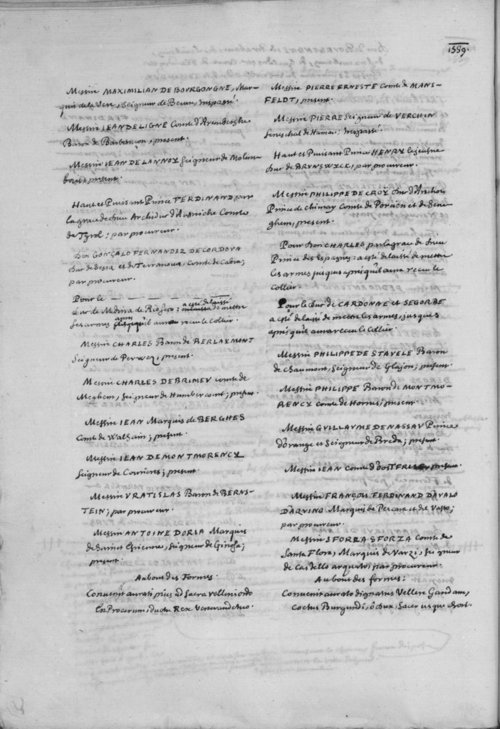 1559.
Messire MAXIMILIAN DE BOURGONGNE, Mar-
quis de la Vere, Seigneur de Bevun, trespassé.
Messire JEAN DE LIGNE Comte d'Arenberghe
Baron de Barbançon, present.
Messire JEAN DE LANNOY Seigneur de Molem-
baix, present.
Hault et Puissant Prince FERDINAND par
la grace de Dieu Archiduc d'Austriche Comte
de Tyrol; par procureur.
Don GONÇALO FERNANDEZ DE CORDOVA
Duc de Sessa, et de Terranova, Comte de Cabra;
par procureur.
Pour le
Duc de Medina de Rioseco: a esté delaissé de mettre
ses armes jusques il aura receu le Collier.
Messire CHARLES Baron de BERLAYMONT
Seigneur de Perwez; present.
Messire CHARLES DE BRIMEV comte de
Meghem, Seigneur de Humbercourt; present.
Messire JEAN Marquis de BERGHES
Comte de Walhain; present.
Messire JEAN DE MONTMORENCY
Seigneur de Corrieres; present.
Messire VRATISLAS Baron de BERNS-
TEIN; par procureur.
Messire ANTOINE DORIA Marquis
de Sainct Estienne, Seigneur de Ginosa;
present.
Au bout des Formes.
Convenit aurati pius ad Sacra velleris ordo
En Procerum, ductu Rex Venerande tuo.
Messire PIERRE ERNESTE Comte de MANS-
FELDT, present.
Messire PIERRE Seigneur de VERCHIN
Seneschal de Hainau, trespassé.
Hault et Puissant Prince HENRY le jeusne
Duc de BRUNSWYCK; par procureur.
Messire PHILIPPE DE CROY Duc d'Arschot
Prince de Chimay Comte de Porceau et de Seni-
ghem, present.
Pour Don CHARLES par la grace de Dieu
Prince des Espagnes: a esté delaissé de mettre
les armes jusques apres qu'il aura receu le
Collier
Pour le Duc de CARDONNE et SEGORBE
a esté delaissé de mettre les armes, jusques
apres qu'il aura receu le Collier.
Messire PHILIPPE DE STAVELE Baron
de Chaumont, Seigneur de Glajon; present.
Messire PHILIPPE Baron de MONTMO-
RENCY Comte de Hornes; present.
Messire GUILLAUME DE NASSAV Prince
d'Orange et Seigneur de Breda; present.
Messire JEAN Comte d'OOSTFRISE present.
Messire FRANÇOIS FERDINAND DAVALO
DAQVINO Marquis de Pescara et de Vasto;
par procureur.
Messire SFORZA SFORZA Comte de
Santa Flora, Marquis de Varzi, Seigneur
de Castello arquato; par procureur.
Au bout des formes:
Convenit aurato dignatus Vellere Gandam,
Coetus Burgundi,